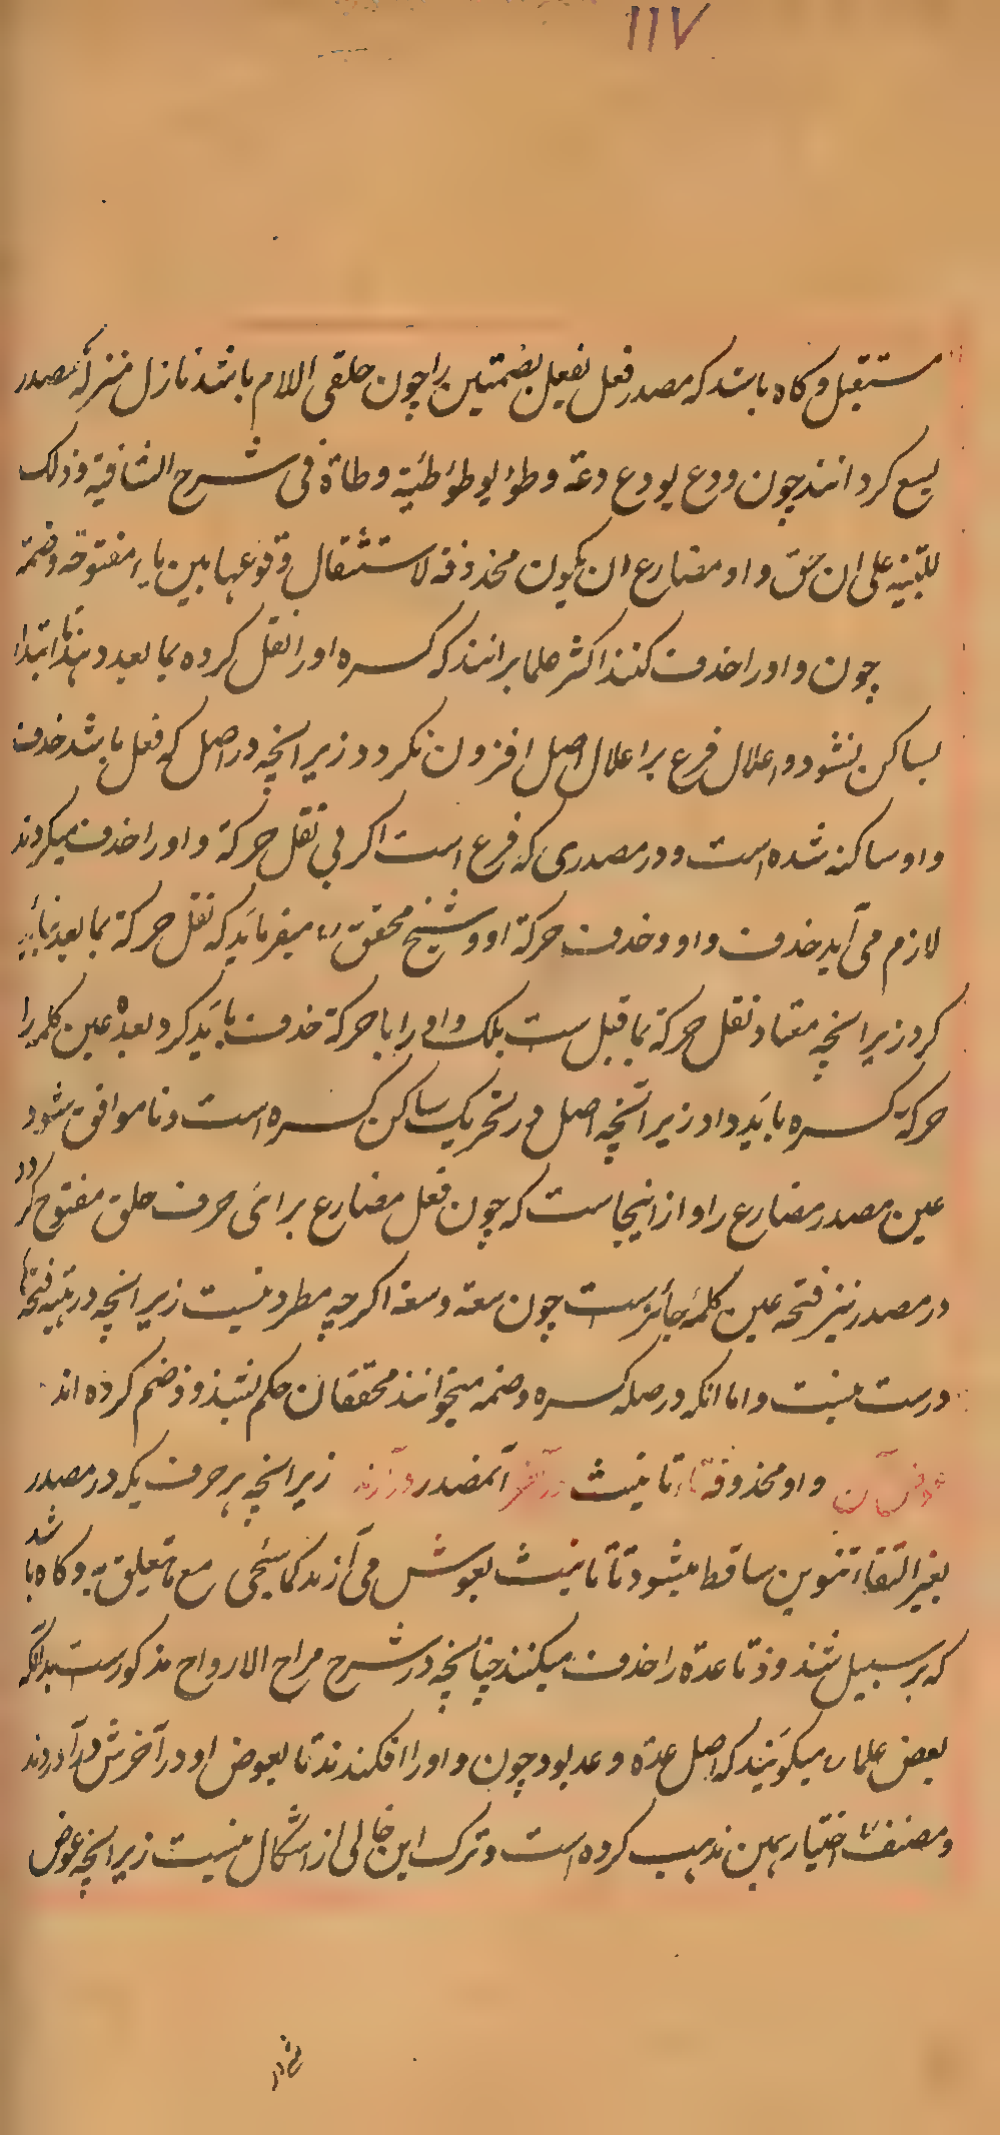 ١١٧
مستقبل و کاه باشد که مصدر فعل یفعل بضمتین را چون حلقی اللام باشد نازل منزلهٔ مصدر
یسع کرد انند چون ودع یودع دعة و طؤ یوطؤ طئیة و طاة فی شرح الشافیة وذلک
للتنبیه علی ان حق واو مضارع ان یکون محذوفه لاستثقال وقوعها بین یاء مفتوحه وضمة
چون واو را حذف کنند اکثر علما برانند که کسره او را نقل کرده بما بعد دهند تا ابتدا
بساکن نشود و اعلال فرع بر اعلال اصل افزون نکردد زیرانچه در اصل که فعل باشد حذف
واو ساکنه شده است و در مصدری که فرع است اکر بی نقل حرکة واو را حذف میکردند
لازم می آید حذف واو و حذف حرکة او و شیخ محقق میفرماید که نقل حرکة بما بعد نباید
کرد زیرانچه معتاد نقل حرکة بما قبل ست بلک واو را با حرکة حذف باید کرد بعده عین کلمه را
حرکة کسره باید داد زیرانچه اصل در تحریک ساکن کسره است و تا موافق شود
عین مصدر مضارع را و از اینجاست که چون فعل مضارع برای حرف حلق مفتوح کردد
در مصدر نیز فتحه عین کلمه جائز ست چون سعة و سعة اکرچه مطرد نیست زیرانچه در فتحه
درست نیست و اما انکه در صله کسره وضمه میخوانند محققان حکم بشذوذ ضم کرده اند
عوض آن واو محذوفه تاء تانیث در آخر آنمصدر در آرند زیرانچه هر حرف یکه در مصدر
بغیر التقاء تنوین ساقط میشود تا تانیث بعوضش می آرند کما سیجی مع ما یتعلق به و کاه باشد
که بر سبیل شذوذ تا عدة را حذف میکنند چنانچه در شرح مراح الارواح مذکورست بدانکه
بعض علما میکویند که اصل عدة وعد بود چون واو را افکندند تا بعوض او در آخرش در آوردند
و مصنف اختیار همین مذهب کرده است و ترک این خالی از اشکال نیست زیرانچه عوض